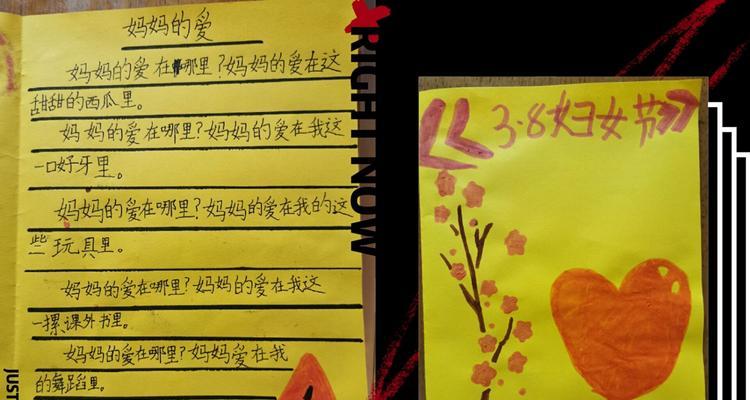 妈妈的爱
妈妈的爱在哪里？妈妈的爱在这
甜甜的西瓜里。
妈妈的爱在哪里？妈妈的爱在我这
一口好牙里。
妈妈的爱在哪里？妈妈的爱在我的这
些玩具里。
妈妈的爱在哪里？妈妈的爱在我这
一摞课外书里。
妈妈的爱在哪里？妈妈爱在我
的舞蹈里。
JUST
RIGHT NOW
《3.8妇女节》